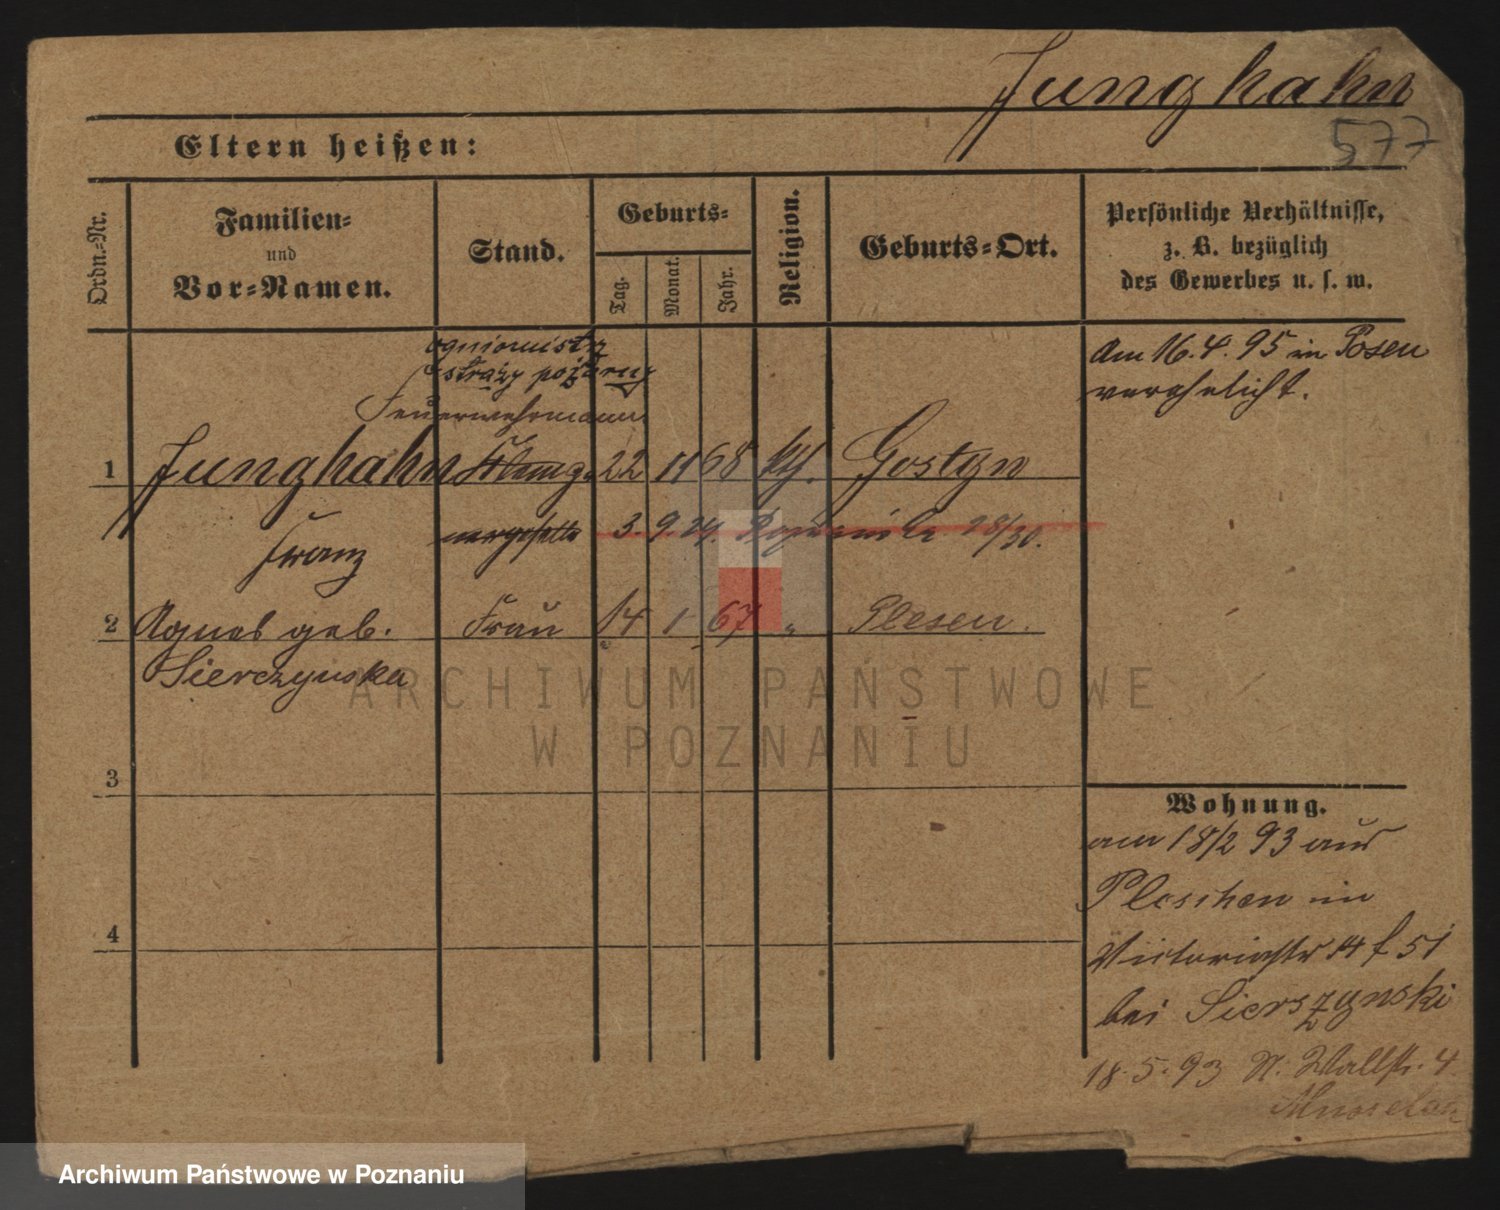 Junghahn
577
Eltern heißen:
Ordn.-Nr.
Familien-
und
Vor-Namen.
Stand.
Geburts-
Tag.
Monat.
Jahr.
Religion.
Geburts-Ort.
Persönliche Verhältnisse,
z. B. bezüglich
des Gewerbes u. s. w.
ogniomistrz
straży pożarnej
Feuerwehrmann
1 Junghahn 22 11 68 kth. Gostyn
Franz
3. 9. 24. 28/30.
2 Agnes geb. Frau 14 1 67 " Plesen.
Sierczynska
3
4
Am 16. 4. 95 in Posen
verehelicht.
Wohnung.
am 18/2 93 aus
Pleschen in
Victoriastr 14 f 51
bei Sierszynski
18. 5. 93 N. Wallstr. 4
ARCHIWUM PAŃSTWOWE
W POZNANIU
Archiwum Państwowe w Poznaniu